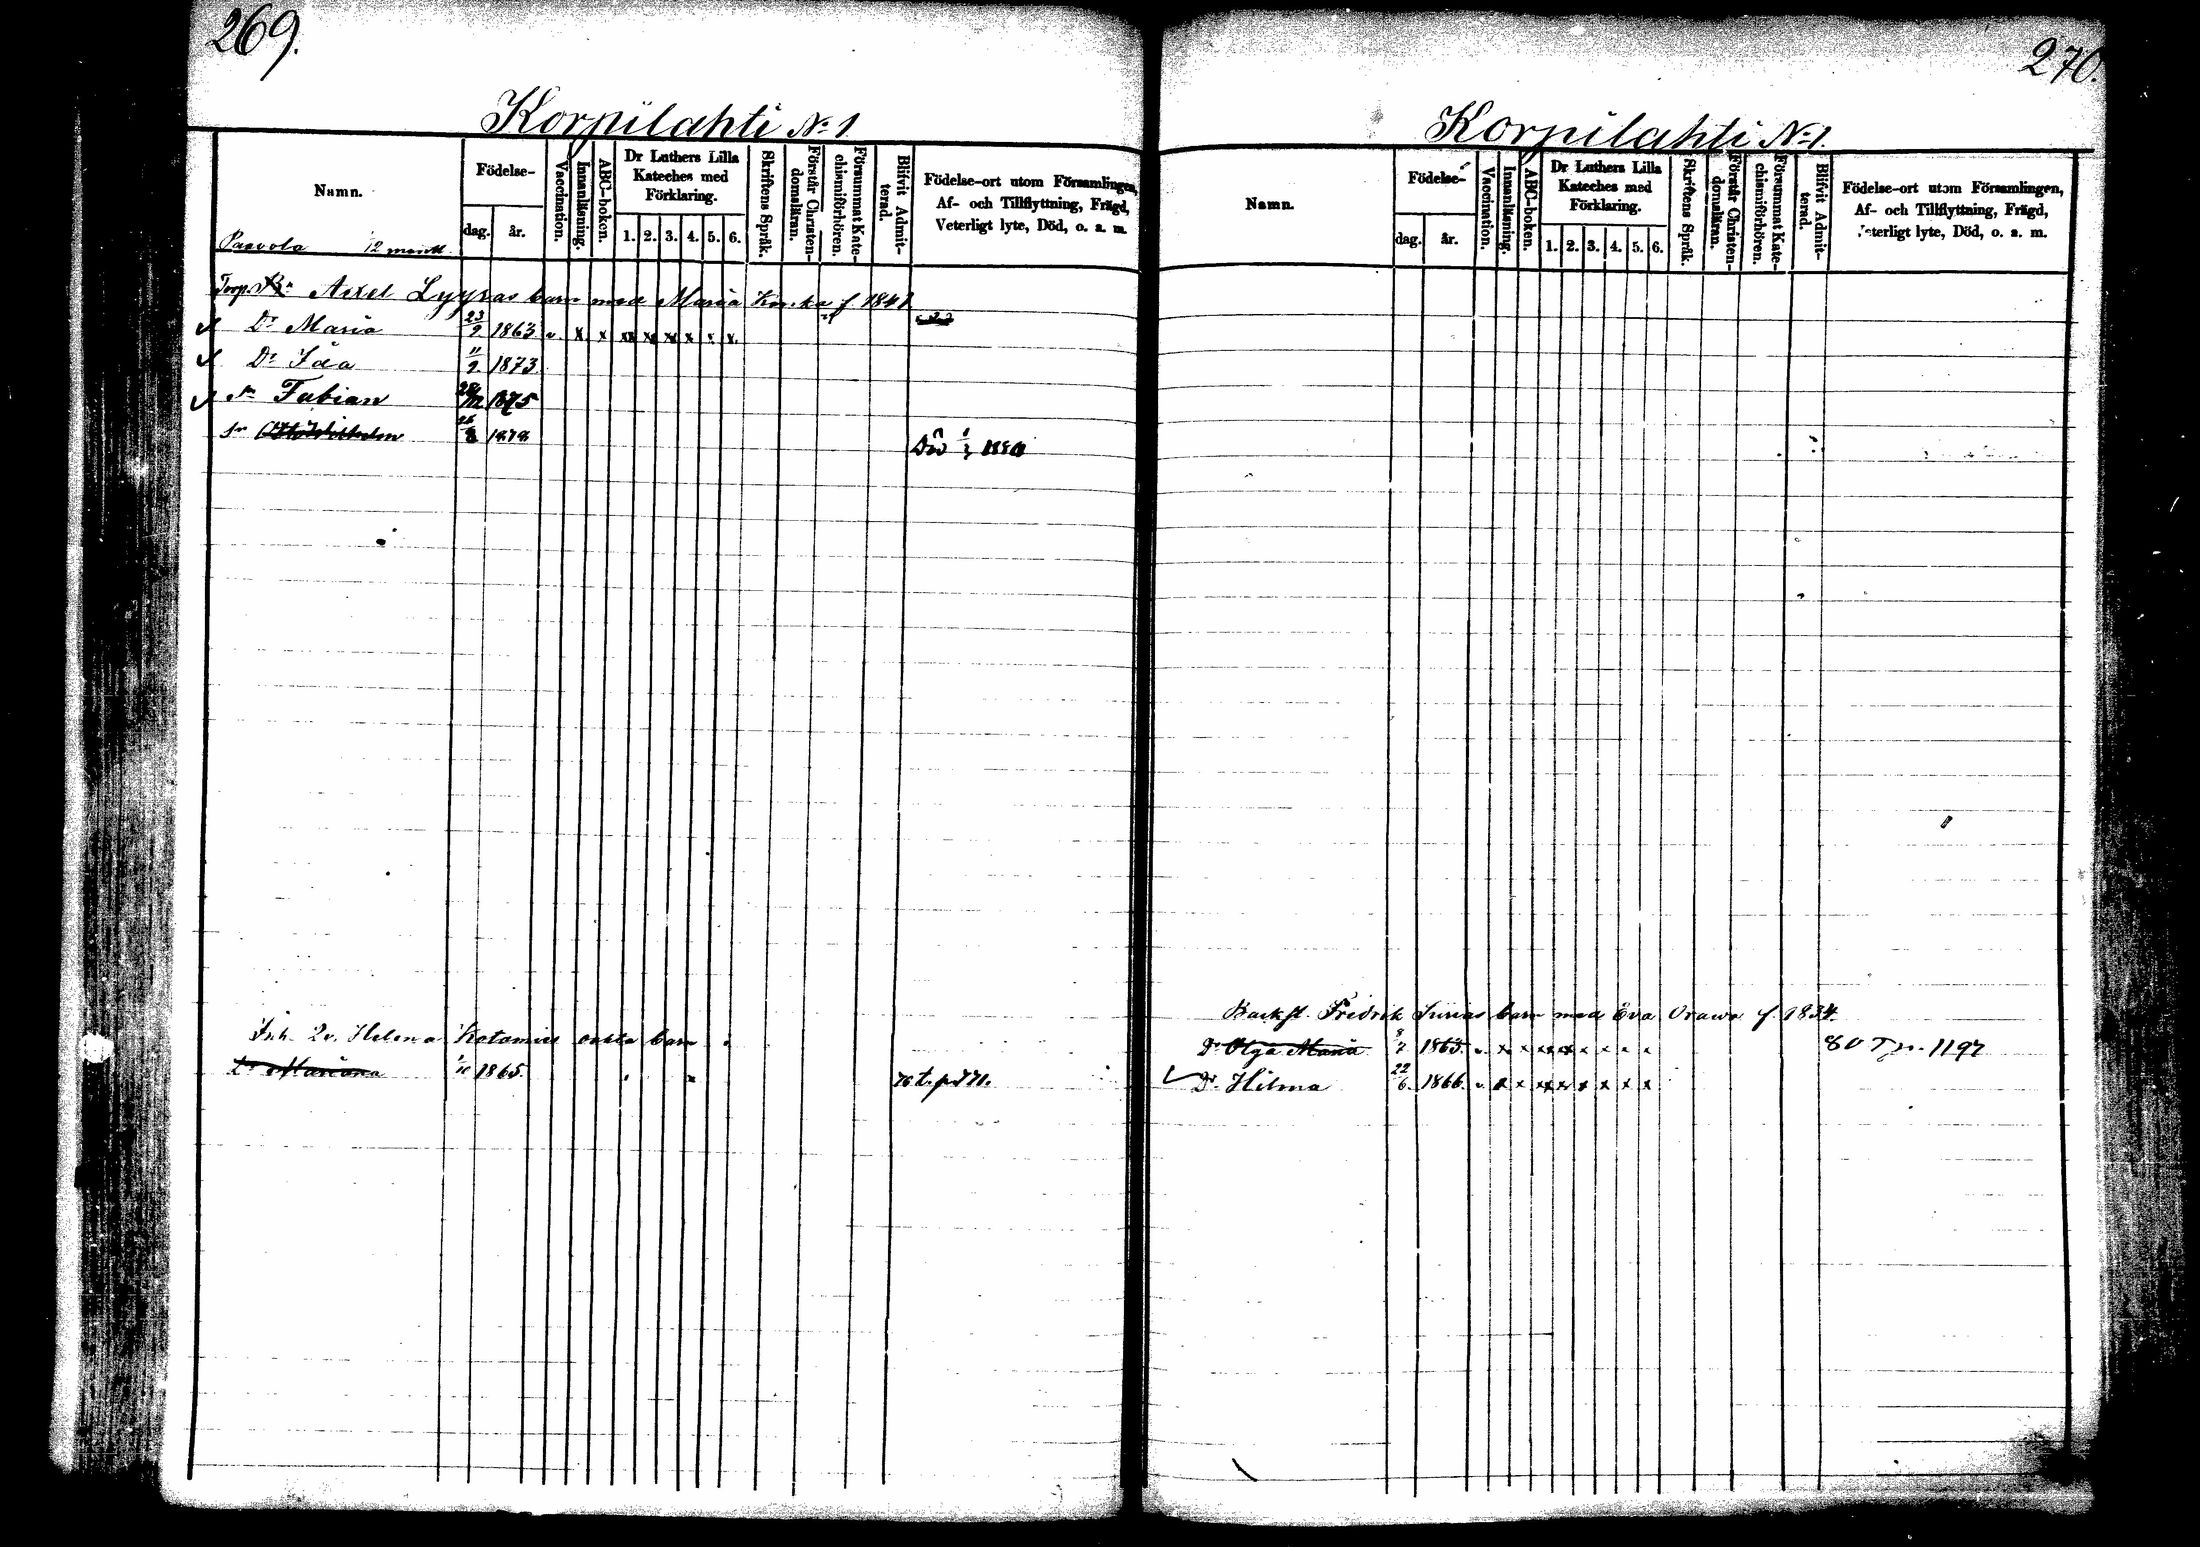 269.
Korpilahti No 1
Namn.
Födelse-
dag.
år.
Vaccination.
Innanläsning.
ABC-boken.
Dr Luthers Lilla
Kateches med
Förklaring.
1. 2. 3. 4. 5. 6.
Skriftens Språk.
Förstår Christen-
domsläran.
Försummat Kate-
chismiförhören.
Blifvit Admit-
terad.
Födelse-ort utom Församlingen,
Af- och Tillflyttning, Frägd,
Veterligt lyte, Död, o. s. m.
Paavola 12 mantl.
Torp. Axel Lyyras barn med Maria f 1841
Dr Maria 23/2 1863 x x x x x x x x
Dr Ida 11/2 1873
Sn Fabian 1875
Sn 26/8 1878 Död 1880
Inh. Helena barn
Dr Mariana 1/10 1865. 76 t. p 771.
270.
Korpilahti No 1.
Namn.
Födelse-
dag.
år.
Vaccination.
Innanläsning.
ABC-boken.
Dr Luthers Lilla
Kateches med
Förklaring.
1. 2. 3. 4. 5. 6.
Skriftens Språk.
Förstår Christen-
domsläran.
Försummat Kate-
chismiförhören.
Blifvit Admit-
terad.
Födelse-ort utom Församlingen,
Af- och Tillflyttning, Frägd,
Veterligt lyte, Död, o. s. m.
Backst. Fredrik Junias barn med Eva Orawa f. 1834.
Dr Olga Maria 8/7 1863. x x x x x x x x 80 T. p. 1197
Dr Hilma 22/6 1866. x x x x x x x x